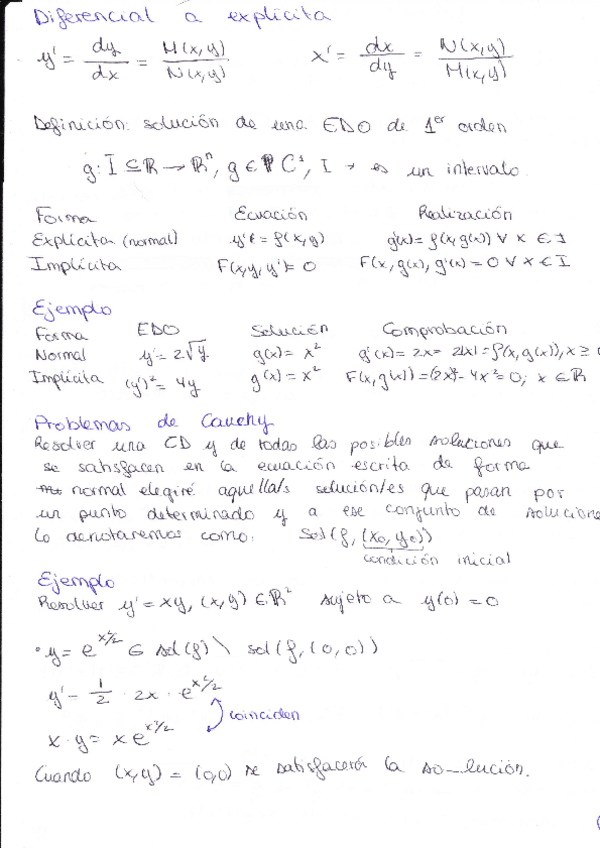 Diferencial a explícita
y' = dy/dx = M(x,y)/N(x,y)    x' = dx/dy = N(x,y)/M(x,y)
Definición: solución de una EDO de 1er orden
g: I ⊆ ℝ → ℝⁿ, g ∈ C¹, I → es un intervalo.
Forma    Ecuación    Realización
Explícita (normal)    y' = f(x,y)    g'(x) = f(x,g(x)) ∀ x ∈ I
Implícita    F(x,y,y') = 0    F(x, g(x), g'(x)) = 0 ∀ x ∈ I
Ejemplo
Forma    EDO    Solución    Comprobación
Normal    y' = 2√y    g(x) = x²    g'(x) = 2x = 2|x| = f(x, g(x)), x ≥ 0
Implícita    (y')² = 4y    g(x) = x²    F(x, g(x)) = (2x)² - 4x² = 0; x ∈ ℝ
Problemas de Cauchy
Resolver una CD y de todas las posibles soluciones que
se satisfacen en la ecuación escrita de forma
normal elegiré aquella/s solución/es que pasan por
un punto determinado y a ese conjunto de solucione
lo denotaremos como: Sol(f, (x₀, y₀))
condición inicial
Ejemplo
Resolver y' = xy, (x,y) ∈ ℝ² sujeto a y(0) = 0
• y = e^(x²/2) ∈ sol(f) \ sol(f, (0,0))
y' = 1/2 · 2x · e^(x²/2)
coinciden
x · y = x e^(x²/2)
Cuando (x,y) = (0,0) se satisfacerá la so_lución.